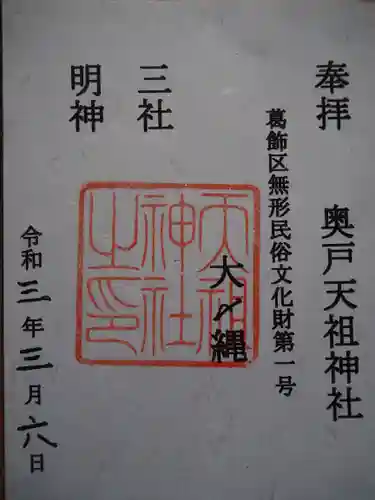 奉拝　奥戸天祖神社
葛飾区無形民俗文化財第一号
大〆縄
三社
明神
天祖
神社
之印
令和三年三月六日